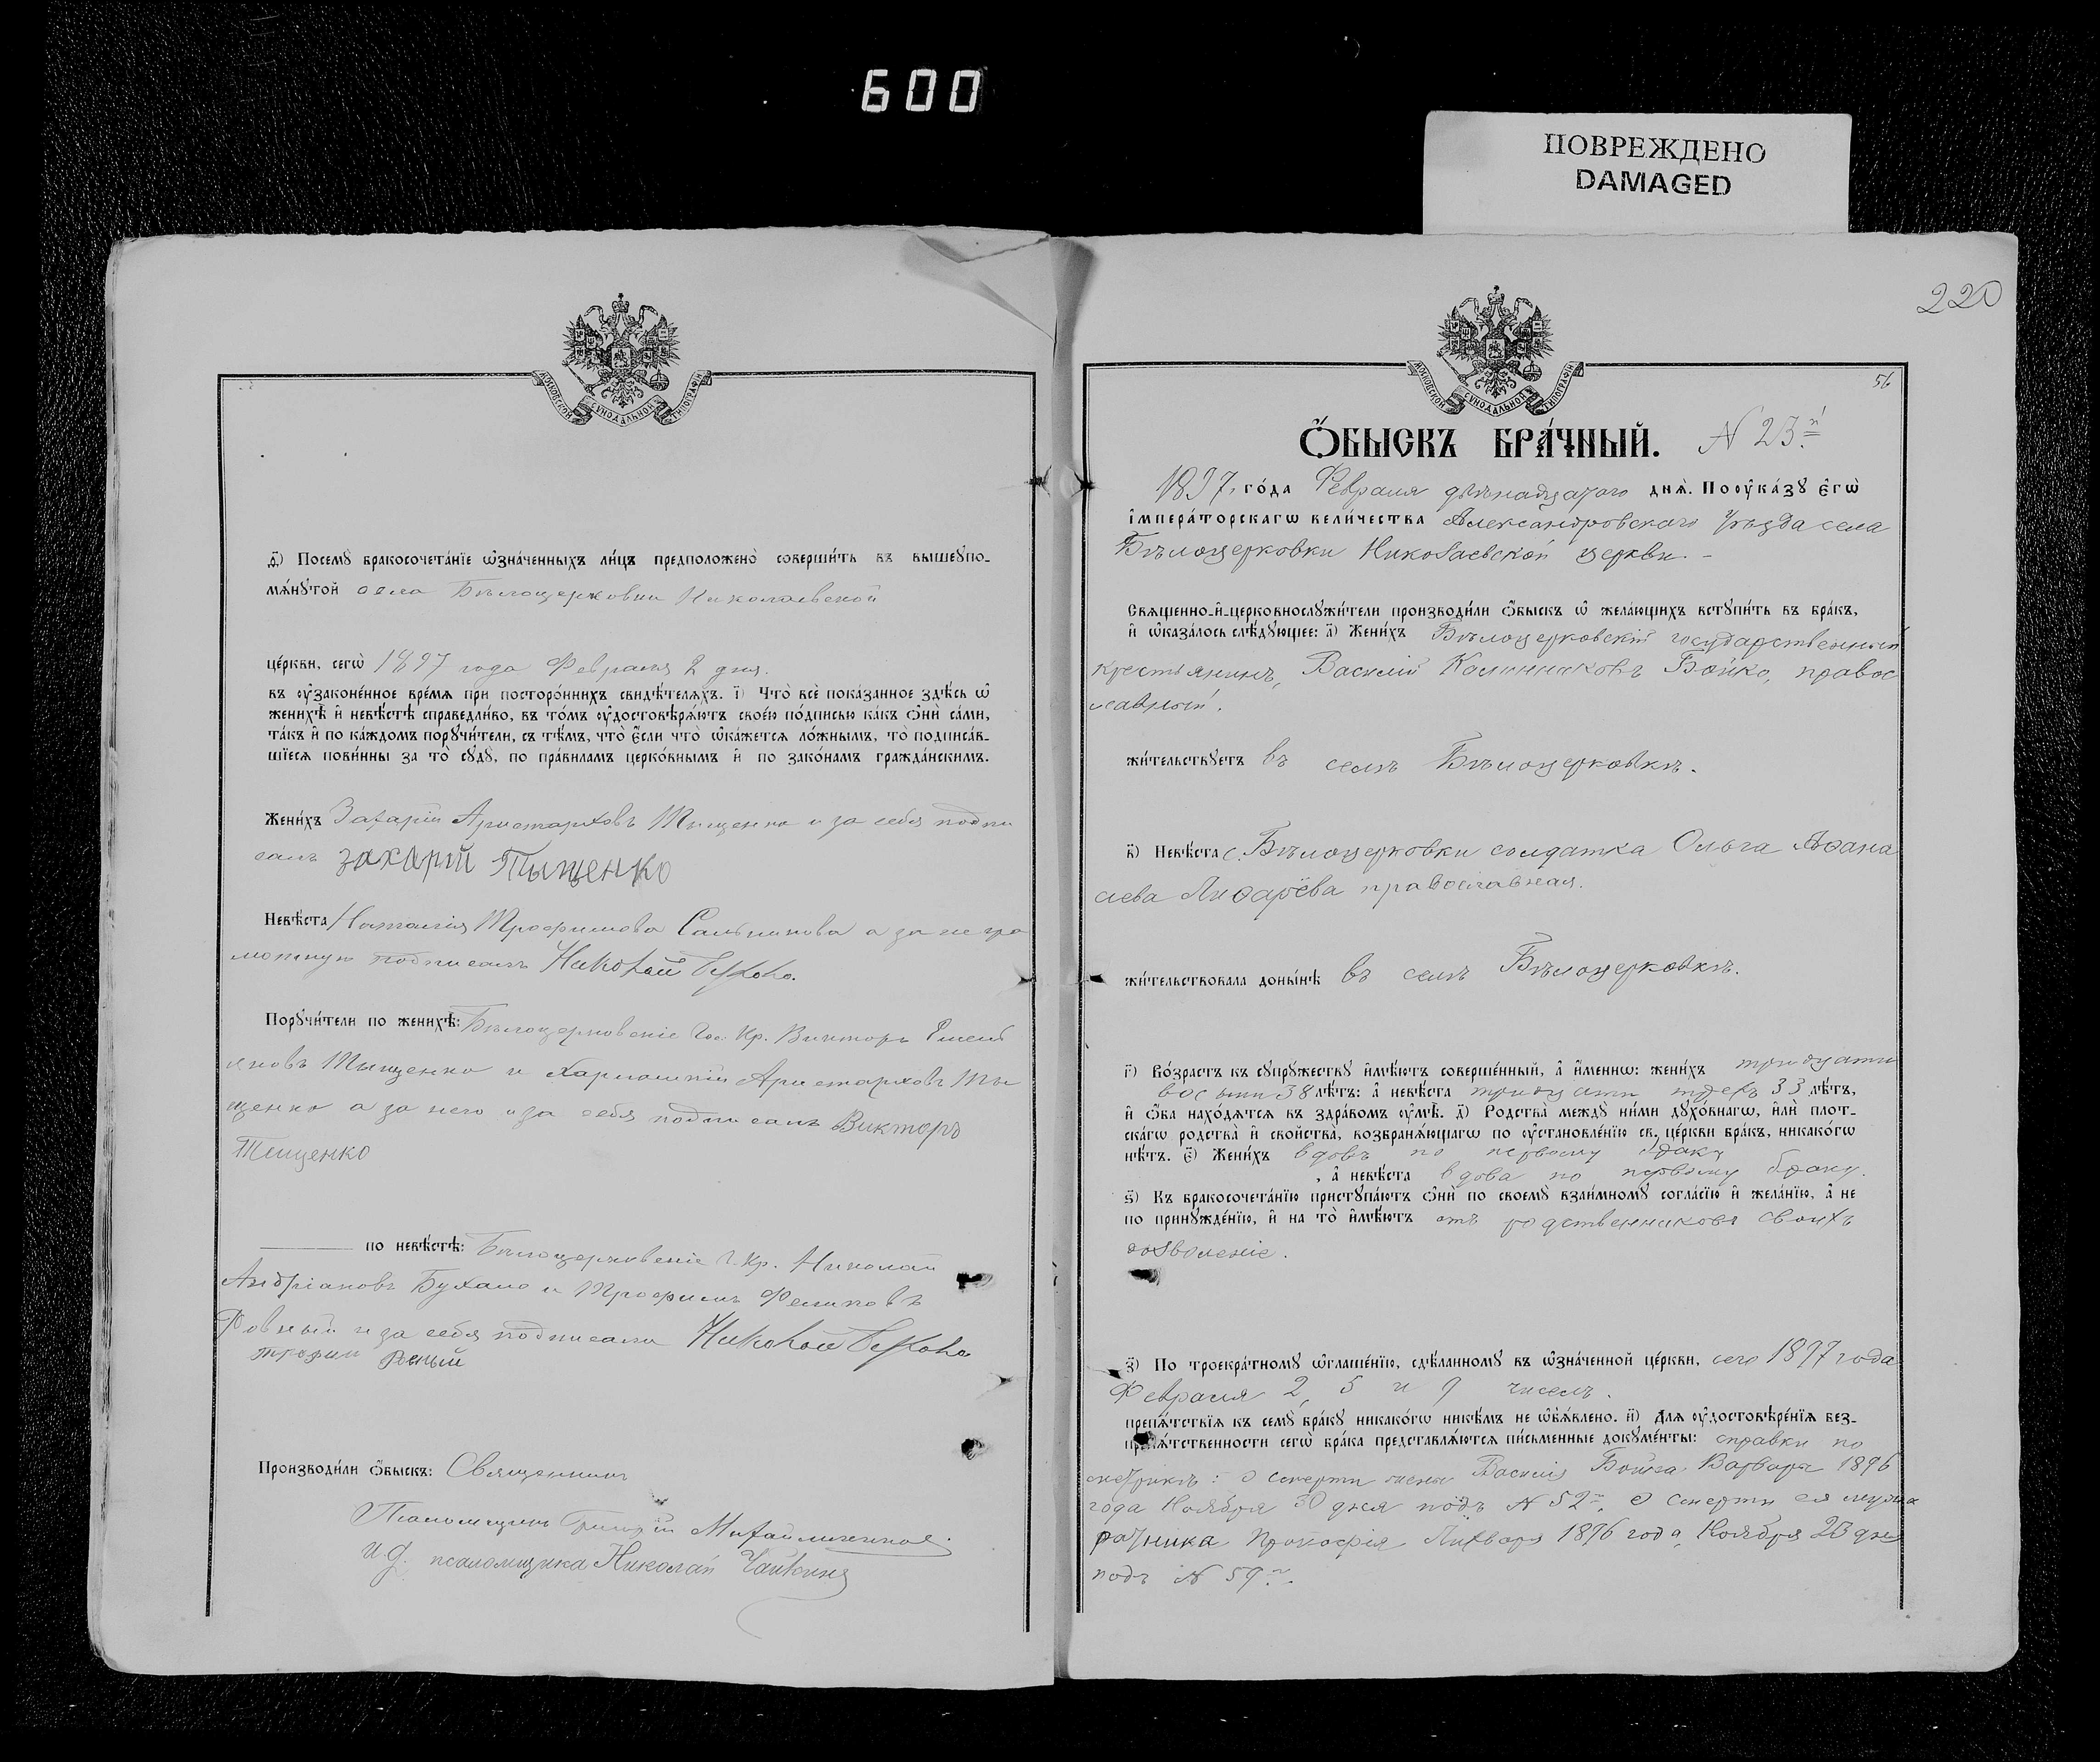 600
ПОВРЕЖДЕНО
DAMAGED
МОСКОВСКОЙ СѴНОДАЛЬНОЙ ТИПОГРАФІИ
д҃) Посемꙋ бракосочетáнїе ѡ҆знáченныхъ ли́цъ предположенò соверши́ть въ вышеꙋпо-
мѧ́нꙋтой села Бѣлоцерковки Николаевской
це́ркви, сегѡ̀ 1897 года Февраля 2 дня.
въ ᲂу҆зако́ненное вре́мѧ при посторо́ннихъ свидѣ́телѧхъ. і҃) Что̀ всѐ пока́занное здѣ́сь ѡ҆
женихѣ̀ и҆ невѣ́стѣ справедли́во, въ то́мъ ᲂу҆достовѣрѧ́ютъ свое́ю по́дписью ка́къ ѻ҆нѝ са́ми,
та́къ и҆ по ка́ждомъ порꙋчи́тели, съ тѣ́мъ, что̀ є҆́сли что̀ ѡ҆ка́жетсѧ ло́жнымъ, то̀ подписа́в-
шїесѧ пови́нны за то̀ сꙋдꙋ̀, по пра́виламъ церко́внымъ и҆ по зако́намъ гражда́нскимъ.
Жени́хъ Захарій Аристарховъ Тыщенко и за себя подпи
салъ Захарій Тыщенко
Невѣ́ста Наталія Трофимова Сальникова а за негра
мотную подписалъ Николай Бухало
Порꙋчи́тели по женихѣ̀: Бѣлоцерковскіе Гос. Кр. Викторъ Емель
яновъ Тыщенко и Харлампій Аристарховъ Ты
щенко а за него и за себя подписалъ Викторъ
Тищенко
по невѣ́стѣ: Бѣлоцерковскіе Г. Кр. Николай
Андріановъ Бухало и Трофимъ
Ровный и за себя подписали Николай Бухало
трофим
Производи́ли ѻ҆́быскъ: Священникъ
Псаломщикъ Григорій Михайличенко
И. д. псаломщика Николай Чайкинъ
220
56
МОСКОВСКОЙ СѴНОДАЛЬНОЙ ТИПОГРАФІИ
Ѻ҆́БЫСКЪ БРА́ЧНЫЙ. N 23.й
1897. го́да Февраля двѣнадцатаго днѧ̀. По ᲂу҆ка́зꙋ є҆гѡ̀
і҆мпера́торскагѡ вели́чества Александровскаго Уѣзда села
Бѣлоцерковки Николаевской церкви. –
Свѧще́нно-и҆-церковнослꙋжи́тели производи́ли ѻ҆́быскъ ѡ҆ жела́ющихъ встꙋпи́ть въ бра́къ,
и҆ ѡ҆каза́лось слѣ́дꙋющее: а҃) Жени́хъ Бѣлоцерковскій государственный
крестьянинъ, Василій Калинниковъ Бойко, правос
лавный.
жи́тельствꙋетъ въ селѣ Бѣлоцерковкѣ.
в҃) Невѣ́ста с. Бѣлоцерковки солдатка Ольга Аѳана
сьева Лихарева православная.
жи́тельствовала доны́нѣ въ селѣ Бѣлоцерковкѣ.
г҃) Во́зрастъ къ сꙋпрꙋ́жествꙋ и҆мѣ́ютъ соверше́нный, а҆ и҆́меннѡ: жени́хъ тридцати
восьми 38 лѣ́тъ: а҆ невѣ́ста тридцати трехъ 33 лѣ́тъ,
и҆ ѻ҆́ба нахо́дѧтсѧ въ здра́вомъ ᲂу҆мѣ̀. д҃) Родства̀ междꙋ̀ ни́ми дꙋхо́внагѡ, и҆лѝ плот-
ска́гѡ родства̀ и҆ сво́йства, возбранѧ́ющагѡ по ᲂу҆становле́нїю св. це́ркви бра́къ, никако́гѡ
нѣ́тъ. є҃) Жени́хъ вдовъ по первому браку
, а҆ невѣ́ста вдова по первому браку.
ѕ҃) Къ бракосочета́нїю пристꙋпа́ютъ ѻ҆нѝ по своемꙋ̀ взаи́мномꙋ согла́сїю и҆ жела́нїю, а҆ не
по принꙋжде́нїю, и҆ на то̀ и҆мѣ́ютъ отъ родственниковъ своихъ
дозволеніе.
з҃) По троекра́тномꙋ ѡ҆глаше́нїю, сдѣ́ланномꙋ въ ѡ҆зна́ченной це́ркви, сего 1897 года
Февраля 2, 5 и 9 чиселъ.
препѧ́тствїѧ къ семꙋ̀ бра́кꙋ никако́гѡ никѣ́мъ не ѡ҆б̾ѧ́влено. и҃) Длѧ ᲂу҆достовѣре́нїѧ без-
препѧ́тственности сегѡ̀ бра́ка представлѧ́ютсѧ пи́сьменные докꙋме́нты: справки по
метрикѣ: о смерти жены Василія Бойка Варвары 1896
года Ноября 30 дня подъ N 52м, о смерти ея мужа
ратника Прокофія Лихваря 1896 года, Ноября 23 дня
подъ N 59м.